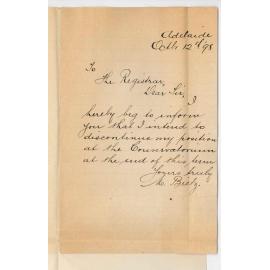 Adelaide
Octb 12th 98
To
The Registrar,
Dear Sir,
I
hereby beg to inform
you that I intend to
discontinue my position
at the Counservatorium
at the end of this term
Yours truly
M.